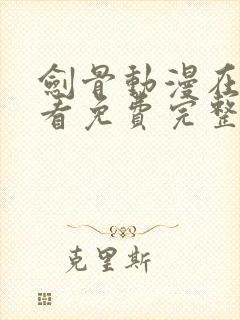 劍骨動漫在
看免費完整
克里斯